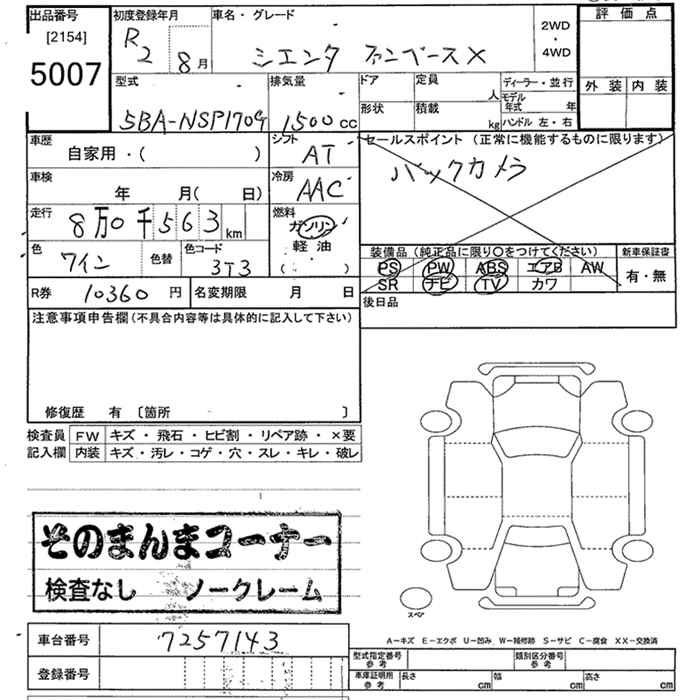 出品番号
[2154]
5007
初度登録年月
R2 8月
車名・グレード
シエンタ ファンベースX
2WD
・
4WD
評価点
外装 内装
型式
5BA-NSP170G
排気量
1500cc
ドア 定員 人
形状 積載 kg
ディーラー・並行
モデル年式 年
ハンドル 左・右
車歴
自家用・( )
シフト
AT
セールスポイント (正常に機能するものに限ります)
バックカメラ
車検
年 月( 日)
冷房
AAC
走行
8万0千563km
燃料
ガソリン
軽油
( ・ )
色
ワイン
色替
色コード
3T3
装備品 (純正品に限り○をつけてください)
新車保証書
PS PW ABS エアB AW
SR ナビ TV カワ
有・無
R券 10360円 名変期限 月 日
後日品
注意事項申告欄(不具合内容等は具体的に記入して下さい)
修復歴 有 〔箇所 〕
検査員 FW キズ・飛石・ヒビ割・リペア跡・×要
記入欄 内装 キズ・汚レ・コゲ・穴・スレ・キレ・破レ
そのまんまコーナー
検査なし ノークレーム
スペア
A-キズ E-エクボ U-凹み W-補修跡 S-サビ C-腐食 XX-交換済
車台番号 7257143
登録番号
型式指定番号
参考
類別区分番号
参考
車庫証明用
参考
長さ cm 幅 cm 高さ cm